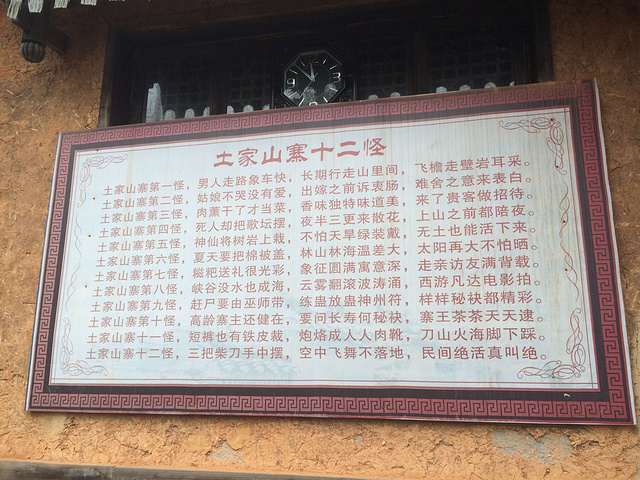 土家山寨十二怪
土家山寨第一怪，男人走路象车快，长期行走山里间，飞檐走壁岩耳采。
土家山寨第二怪，姑娘不哭没有爱，出嫁之前诉衷肠，难舍之意来表白。
土家山寨第三怪，肉薰干了才当菜，香味独特味道美，来了贵客做招待。
土家山寨第四怪，死人却把歌坛摆，夜半三更来散花，上山之前都陪夜。
土家山寨第五怪，神仙将树岩上栽，不怕天旱绿装戴，无土也能活下来。
土家山寨第六怪，夏天要把棉被盖，林山林海温差大，太阳再大不怕晒。
土家山寨第七怪，糍粑送礼很光彩，象征圆满寓意深，走亲访友满背载。
土家山寨第八怪，峡谷没水也成海，云雾翻滚波涛涌，西游凡达电影拍。
土家山寨第九怪，赶尸要由巫师带，练蛊放蛊神州符，样样秘袂都精彩。
土家山寨第十怪，高龄寨主还健在，要问长寿何秘袂，寨王茶茶天天逮。
土家山寨十一怪，短裤也有铁皮裁，炮烙成人人肉靴，刀山火海脚下踩。
土家山寨十二怪，三把柴刀手中摆，空中飞舞不落地，民间绝活真叫绝。